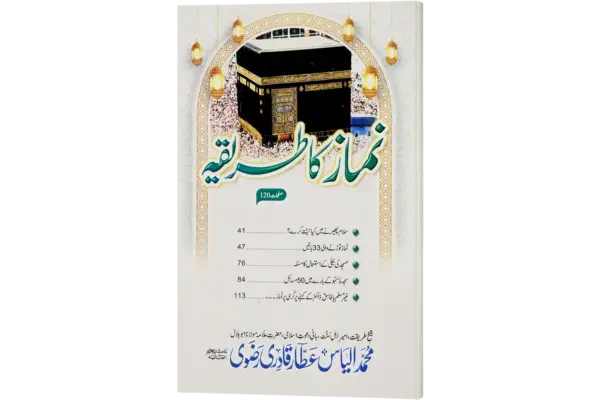 نماز کا طریقہ
صفحات 120
سلام پھیرنے میں کیا نیت کرے؟ 41
نماز توڑنے والی 33 باتیں 47
مسجد کی بجلی کے استعمال کا مسئلہ 76
سجدۂ سہو کے بارے میں 50 مسائل 84
غیر مسلم یا فاسق ڈاکٹر کے کہنے پر کرسی پر نماز۔۔۔ 113
شیخ طریقت، امیر اہل سنت، بانی دعوت اسلامی، حضرت علامہ مولانا ابو بلال
محمد الیاس عطار قادری رضوی